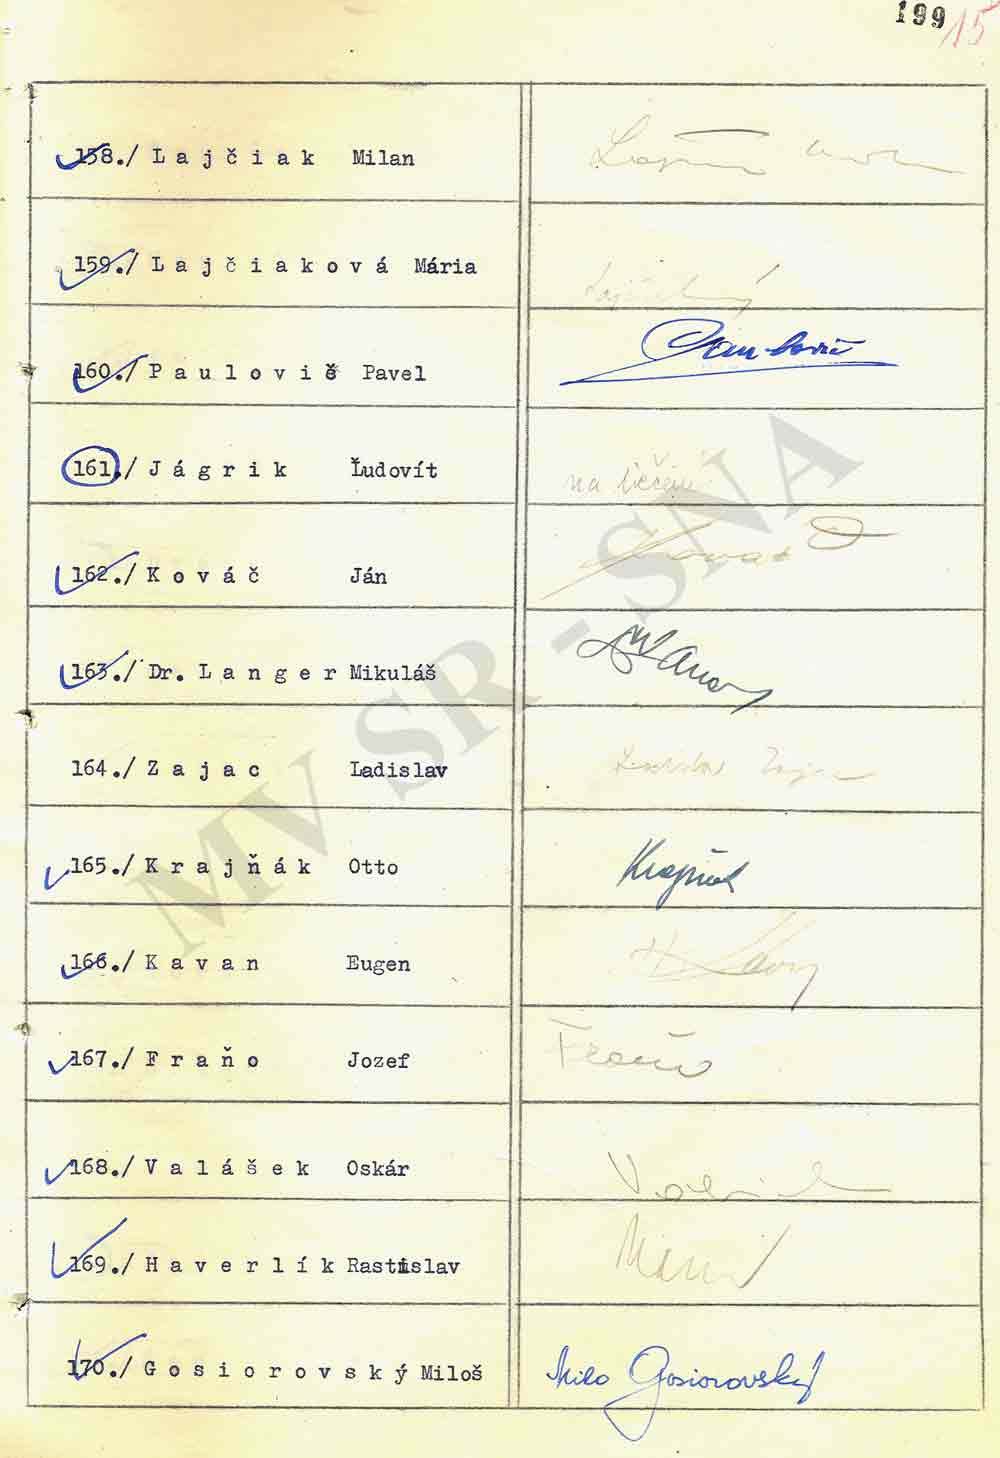 199 15
158./ Lajčiak Milan
159./ Lajčiaková Mária
160./ Paulovič Pavel
161./ Jágrik Ľudovít na liečení
162./ Kováč Ján
163./ Dr. Langer Mikuláš
164./ Zajac Ladislav
165./ Krajňák Otto Krajňák
166./ Kavan Eugen
167./ Fraňo Jozef Fraňo
168./ Valášek Oskár
169./ Haverlík Rastislav
170./ Gosiorovský Miloš Milo Gosiorovský
MV SR - SNA